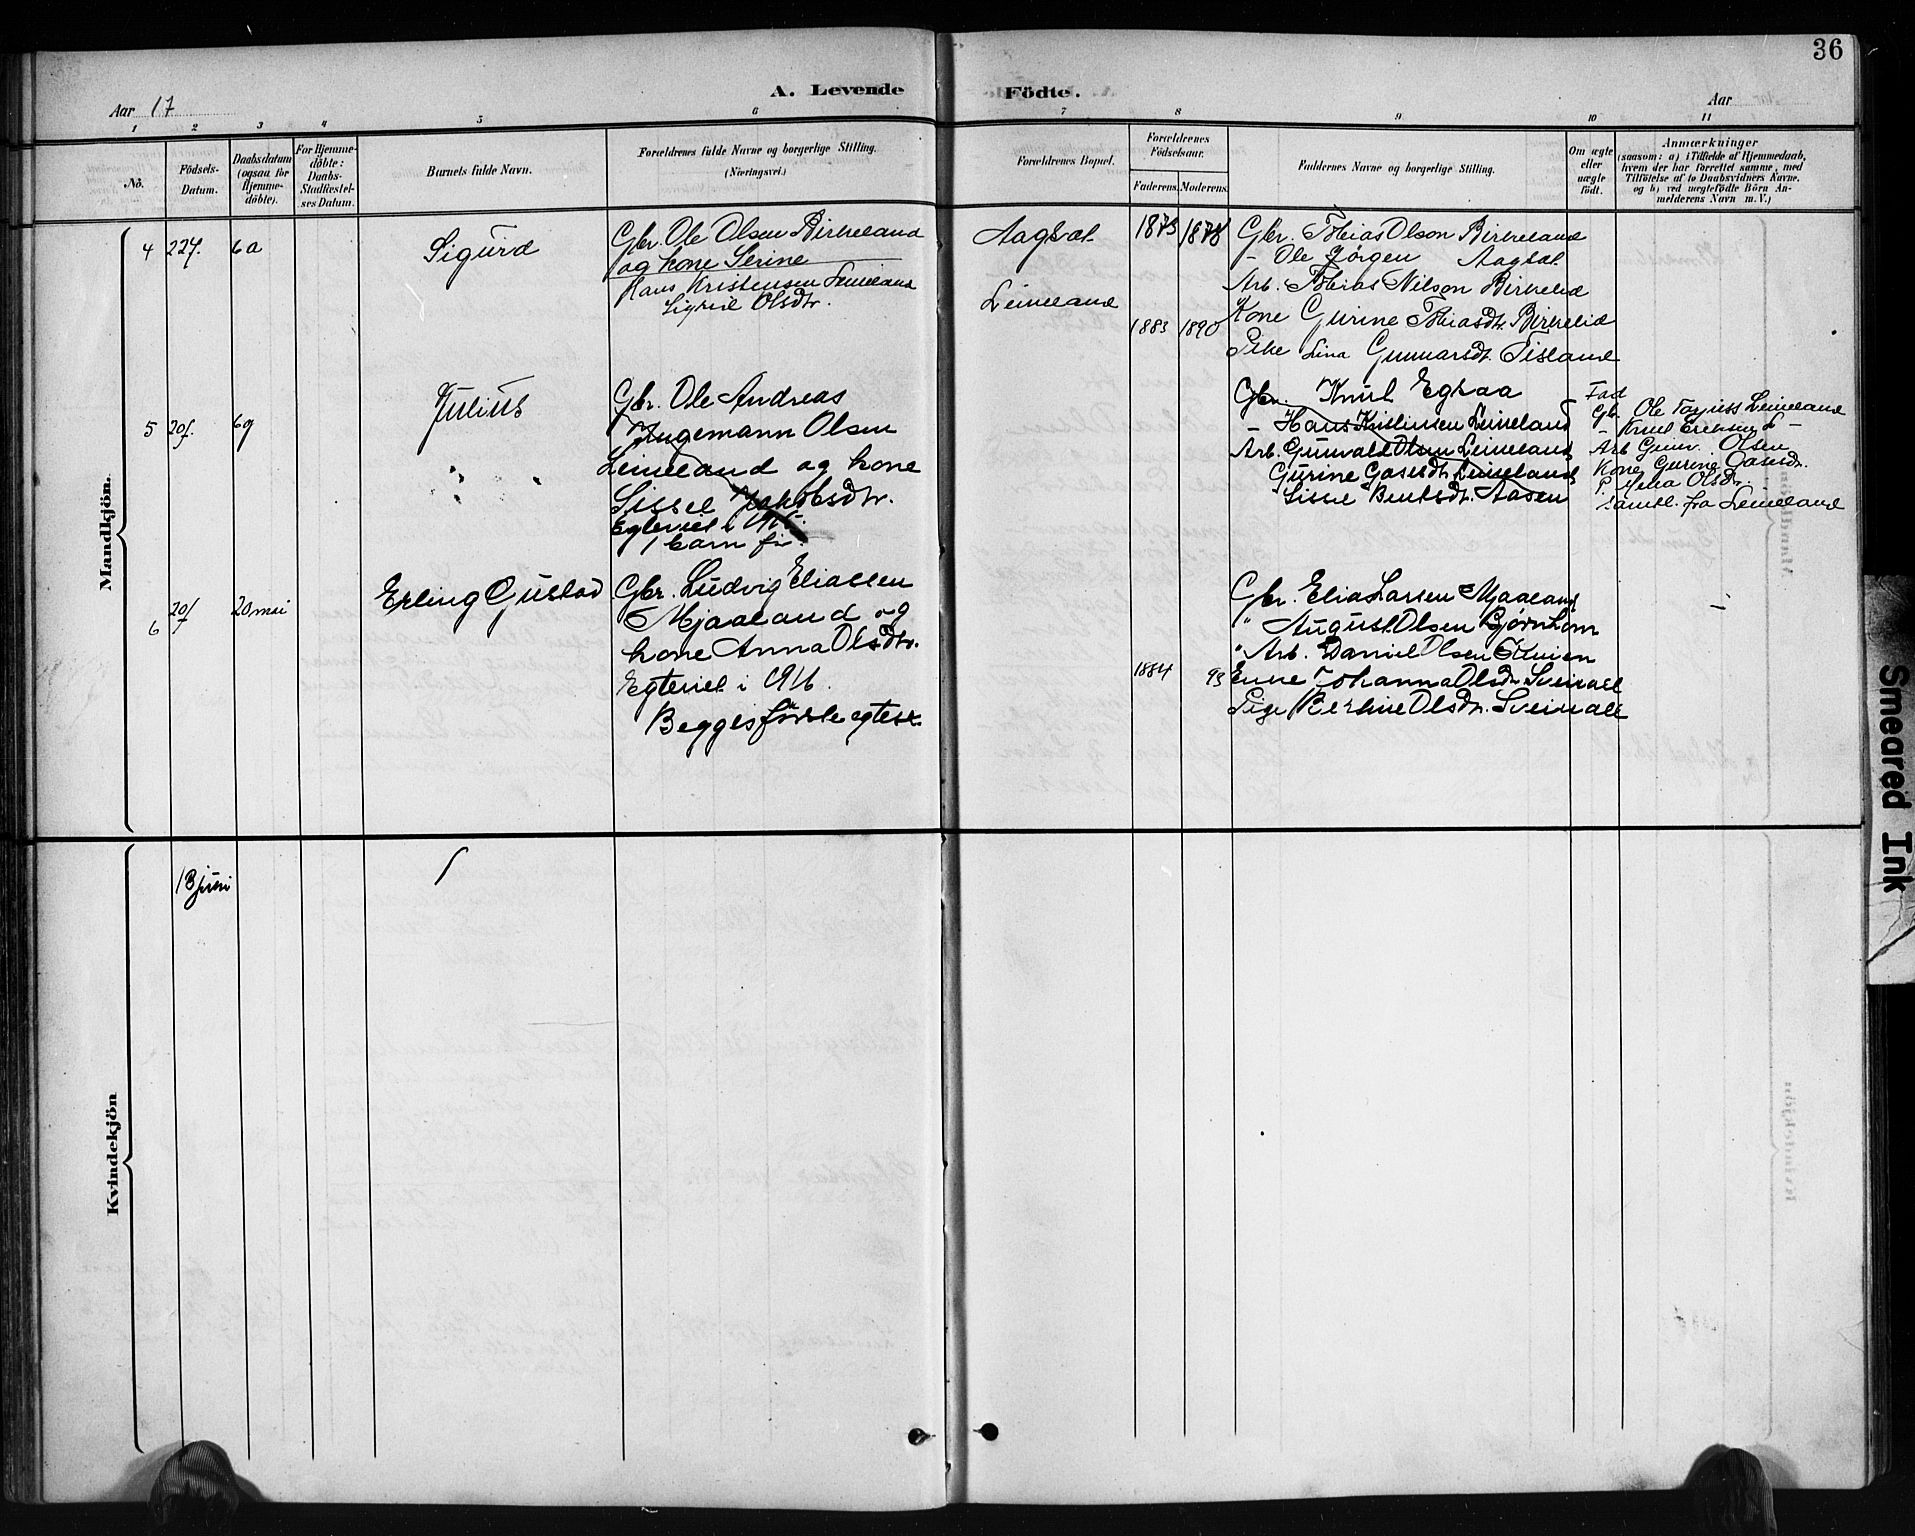 36
A. Levende Födte.
Aar 17
Aar
1 2 3 4 5 6 7 8 9 10 11
No.
Födsels-
Datum.
Daabsdatum
(ogsaa for
Hjemme-
döbte).
For Hjemme-
döbte:
Daabs-
Stadfæstel-
ses Datum.
Barnets fulde Navn.
Forældrenes fulde Navne og borgerlige Stilling.
(Næringsvei.)
Forældrenes Bopæl.
Forældrenes
Födselsaar.
Faderens.
Moderens.
Faddernes Navne og borgerlige Stilling.
Om ægte
eller
uægte
födt.
Anmærkninger
(saasom: a) i Tilfælde af Hjemmedaab,
hvem der har forrettet samme, med
Tilföielse af to Daabsvidners Navne.
og b) ved uægtefödte Börn An-
melderens Navn m. V.)
Mandkjön.
4
6a
Sigurd
Gbr. Ole Olsen Birkeland
og kone Serine
Hans Kristensen Leineland
Sigrid Olsdtr.
Leineland
1873
1878
1883
1890
Gbr. Tobias Olson Birkeland
- Ole Jörgen
Arb. Tobias Nilson Birkelid
Kone Gurine Tobiasdt. Birkelid
Pike Lina Gunnarsdt.
5
20/
Julius
Gbr. Ole Andreas
Ingemann Olsen
Leineland og kone
Sissel Jakobsdtr.
1 barn før.
Gbr. Knut Egsaa
- Hans Kristensen Leineland
Arb. Gunvald Olsen Leineland
Gurine Gasesdt. Leineland
Sisse Bentsdt. Aasen
Fad
Gbr. Ole Leineland
- Knut Eriksen
Arb Gunv. Olsen
Kone Gurine Gasesdt.
P. Olsdtr.
samtl. fra Leineland
6
20/7
20 mai
Erling Gustav
Gbr. Ludvig Eliassen
Mjaaland og
kone Anna Olsdtr.
Egteviet i 1916.
Begges første egtesk.
1884
93
Gbr. Elias Larsen Mjaaland
" August Olsen Bjørnkom
" Arb. Daniel Olsen
Enke Johanna Olsdtr. Sveinall
Pige Berline Olsdt. Sveinall
Kvindekjön
13 juni
/
Smeared Ink